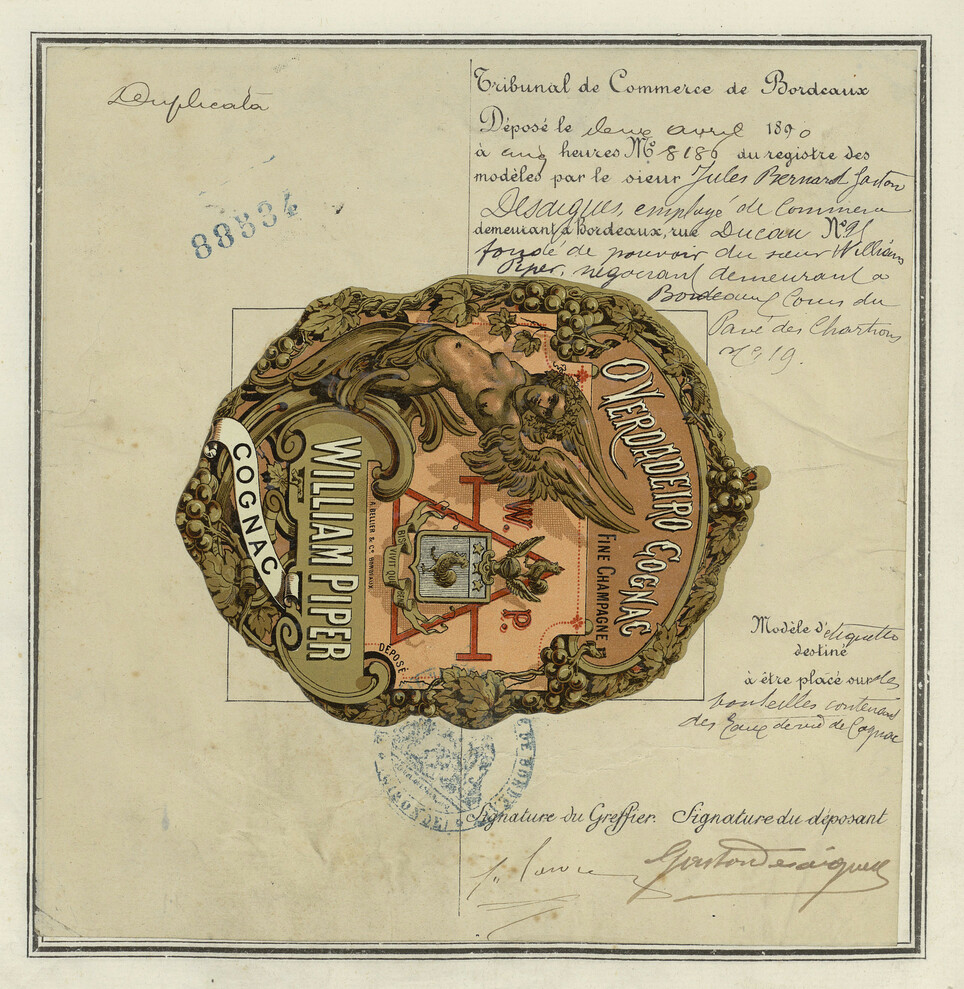 Duplicata
88534
Tribunal de Commerce de Bordeaux
Déposé le deux avril 1890
à cinq heures No 8186 du registre des
modèles par le sieur Jules Bernard Gaston
Desaigues, employé de Commerce
demeurant à Bordeaux, rue Ducau No
fondé de pouvoir du sieur William
Piper, négociant demeurant à
Bordeaux Cours du
Pavé des Chartrons
No 19.
O VERDADEIRO COGNAC
FINE CHAMPAGNE
W. P.
BIS VIVIT QUI
A. BELLIER & Co. BORDEAUX.
DÉPOSÉ
WILLIAM PIPER
COGNAC
Modèle d'étiquette
destiné
à être placé sur des
bouteilles contenant
des Eaux de vie de Cognac
DE BORDE
Signature du Greffier. Signature du déposant
Gaston Desaigues